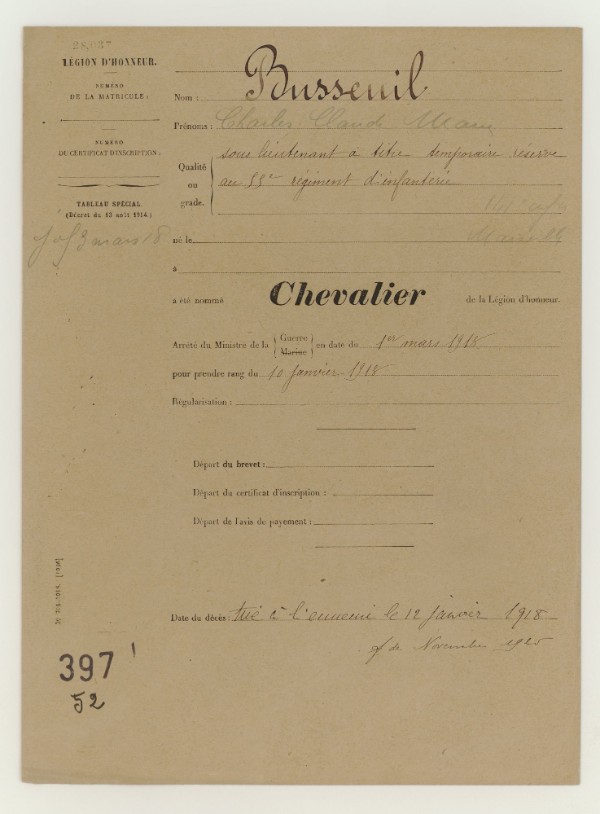 28,037
LÉGION D'HONNEUR.
NUMÉRO
DE LA MATRICULE :
NUMÉRO
DU CERTIFICAT D'INSCRIPTION :
TABLEAU SPÉCIAL
(Décret du 13 août 1914.)
J of 3 mars 18
Nom : Busseuil
Prénoms : Charles Claude Marie
Qualité ou grade. sous lieutenant à titre temporaire réserve
au 55e régiment d'infanterie
né le
à
a été nommé Chevalier de la Légion d'honneur.
Arrêté du Ministre de la Guerre Marine en date du 1er mars 1918
pour prendre rang du 10 janvier 1918
Régularisation :
Départ du brevet :
Départ du certificat d'inscription :
Départ de l'avis de payement :
Date du décès : tué à l'ennemi le 12 janvier 1918
de Novembre 1925
397
52